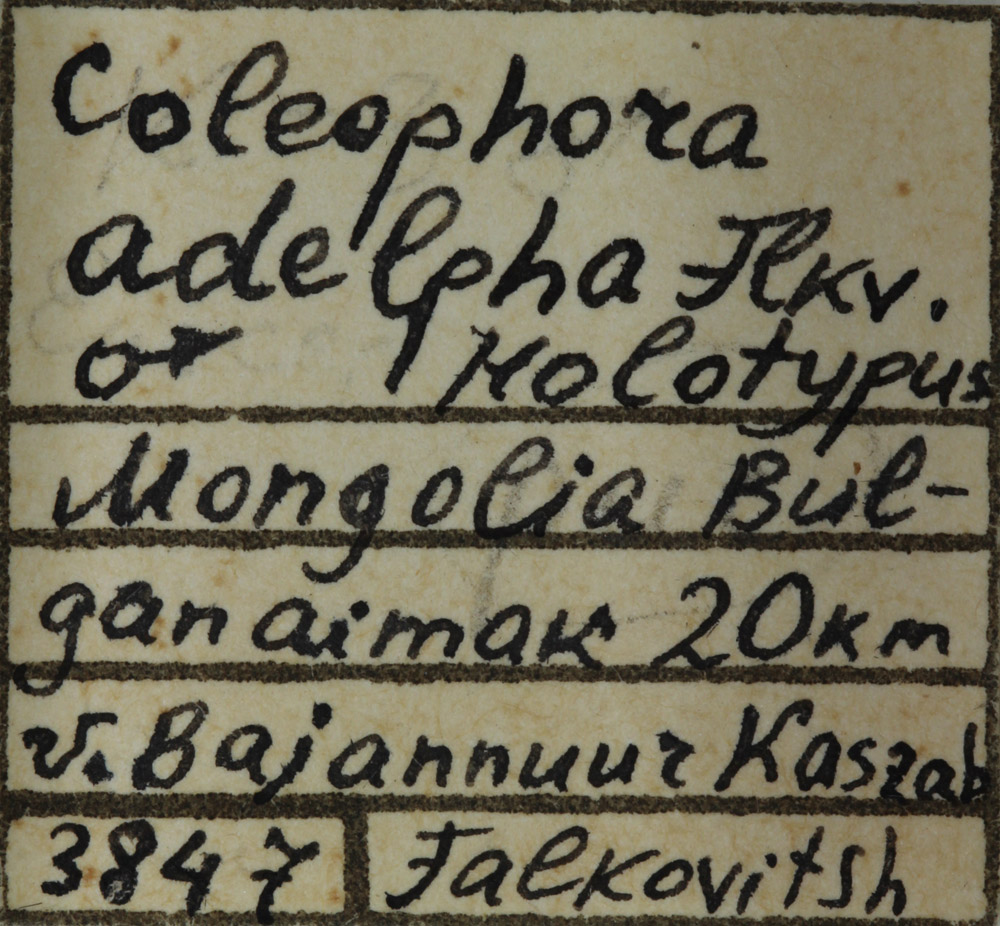 Coleophora
adelpha Flkv.
♂ Holotypus
Mongolia Bul-
gan aimak 20 km
v. Bajannuur Kaszab
3847 Falkovitsh